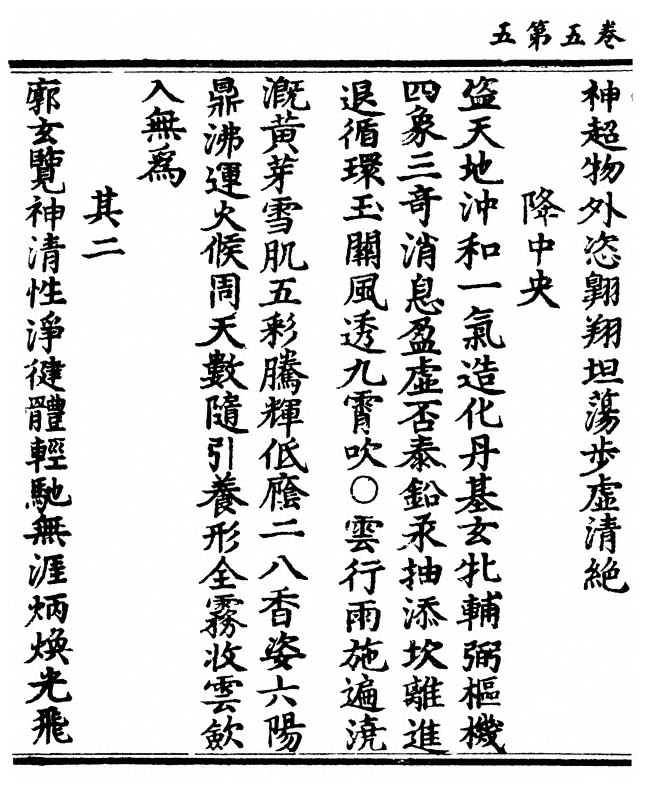 卷五第五
神超物外恣翺翔坦蕩步虛清絶
降中央
盜天地沖和一氣造化丹基玄牝輔弼樞機
四象三奇消息盈虛否泰鉛汞抽添坎離進
退循環玉關風透九霄吹○雲行雨施遍澆
溉黃芽雪肌五彩騰輝低廕二八香姿六陽
鼎沸運火候周天數隨引養形全霧收雲歛
入無爲
其二
廓玄覽神清性淨健體輕馳無涯炳煥光飛